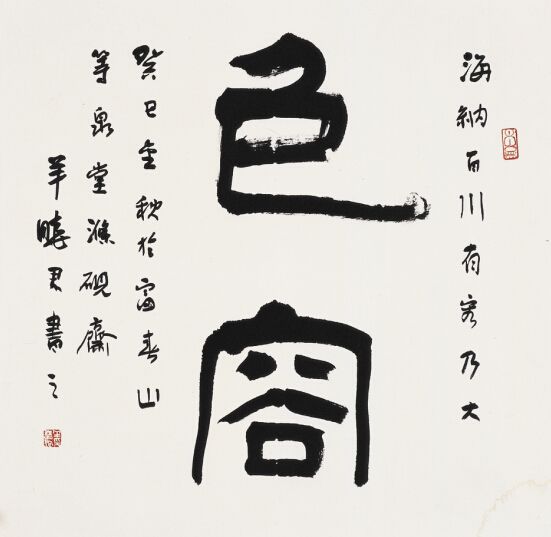 海納百川有容乃大
包容
癸巳金秋於富春山
等泉堂滌硯齋
羊曉君書之